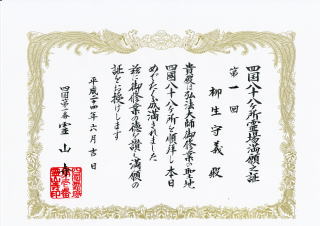 四国八十八ヶ所霊場満願之証
第一回
柳生守義殿
貴殿は弘法大師御修業の聖地
四國八十八ヶ所を順拝し本日
めでたく成満されました
茲に御修業の徳を讃え満願の
証をお授けします
平成二十四年六月吉日
四国第一番霊山寺